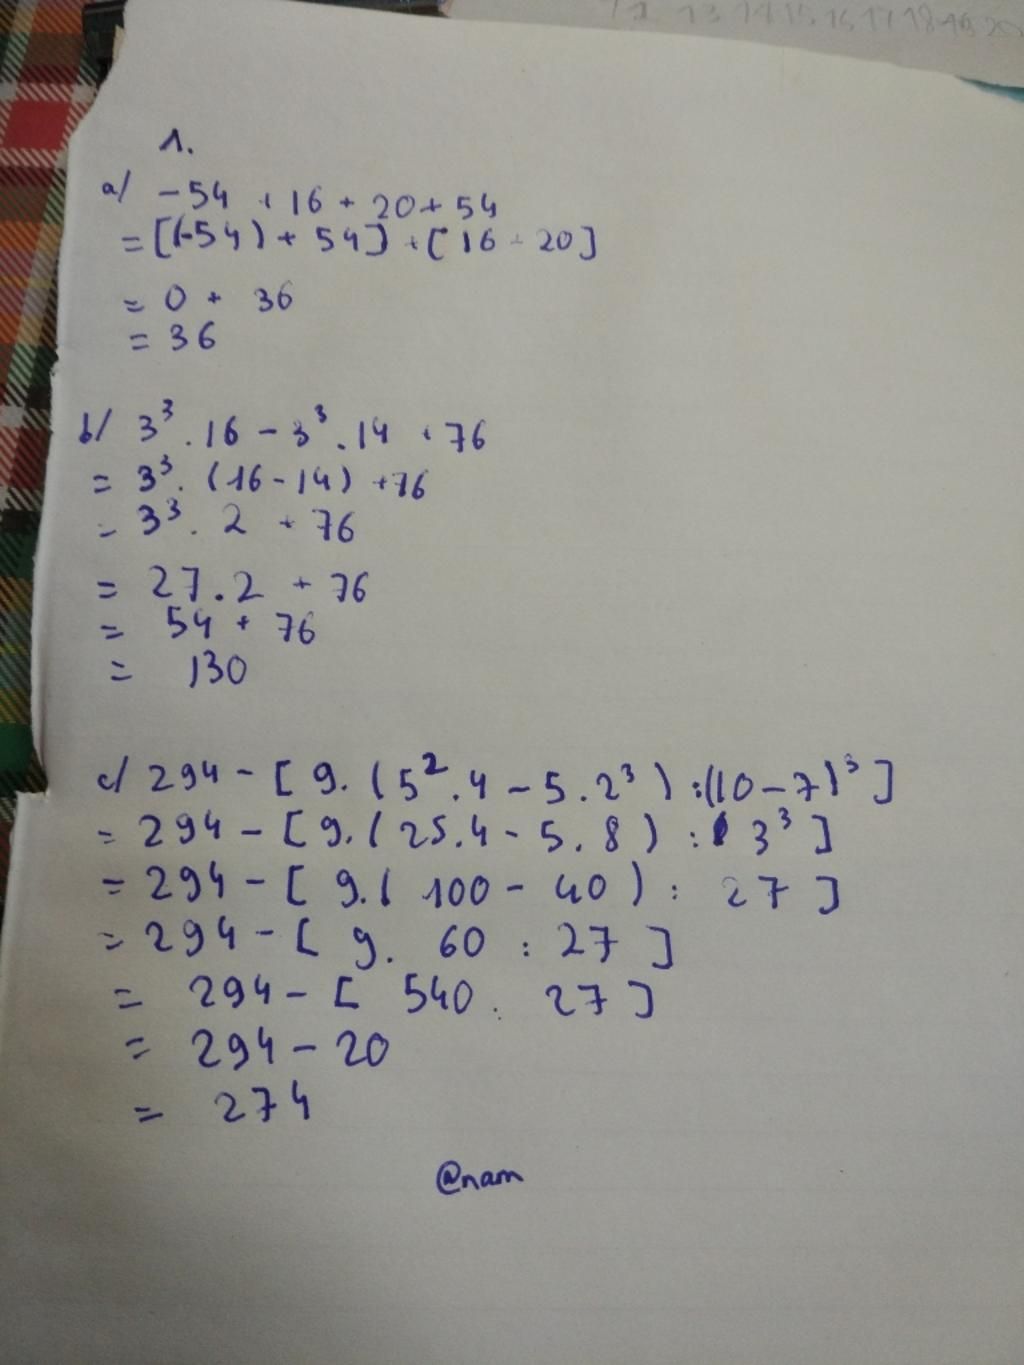 12 13 14 15 16 17 18 19 20
1.
a/ -54 + 16 + 20 + 54
= [(-54) + 54] + [16 + 20]
= 0 + 36
= 36
b/ 3³ . 16 - 3³ . 14 + 76
= 3³ . (16 - 14) + 76
= 3³ . 2 + 76
= 27 . 2 + 76
= 54 + 76
= 130
c/ 294 - [ 9 . ( 5² . 4 - 5 . 2³ ) : (10 - 7)³ ]
= 294 - [ 9 . ( 25 . 4 - 5 . 8 ) : 3³ ]
= 294 - [ 9 . ( 100 - 40 ) : 27 ]
= 294 - [ 9 . 60 : 27 ]
= 294 - [ 540 : 27 ]
= 294 - 20
= 274
@nam